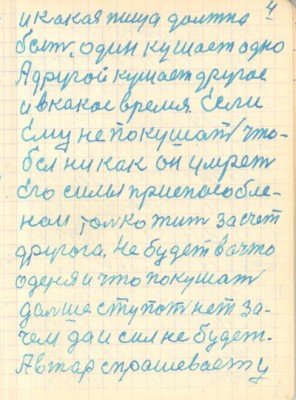 4
и какая пища должна
быть. один кушает одно
А другой кушает другое
и в какое время. Если
Ему не покушать что-
бы ни как он умрет
Его силы приспособле-
ном толко жит за счет
другога. Не будет вачто
оденя и что покушат
далше ступат нет за-
чем да и сил не будет.
Автар спрашевает у